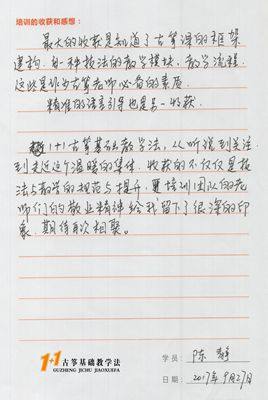 培训的收获和感想：
最大的收获是知道了古筝课的框架
建构。每一种技法的教学模块，教学流程
这些是作为古筝老师必备的素质。
精准的语言引导也是另一收获。
1+1古筝基础教学法，从听说到关注
到走近这个温暖的集体，收获的不仅仅是技
法与教学的规范与提升，更培训团队的老
师们的敬业精神给我留下了很深的印
象，期待再次相聚。
1+1古筝基础教学法
GUZHENG JICHU JIAOXUEFA
学员：陈静
日期：2017年9月27日